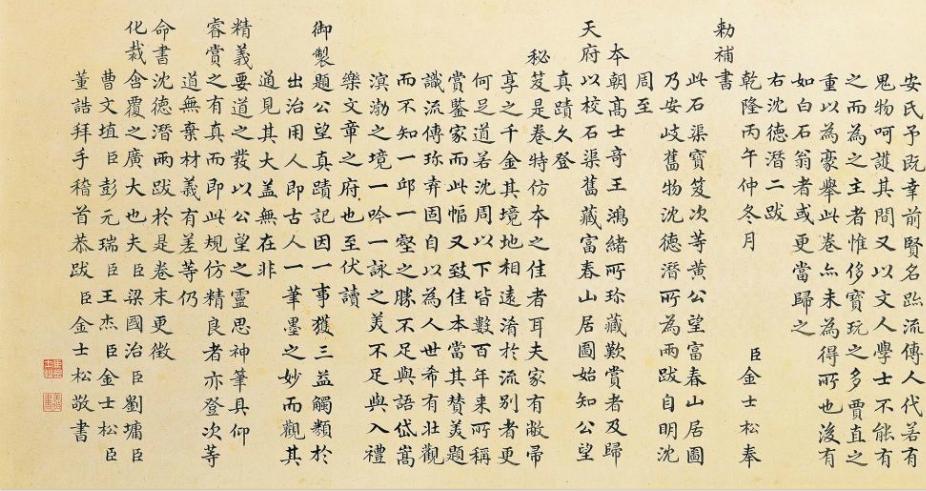 安氏予既幸前賢名跡流傳人代若有
鬼物呵護其間又以文人學士不能有
之而為之主者惟侈寶玩之多賈直之
重以為豪舉此卷亦未為得所也後有
如白石翁者或更當歸之
右沈德潛二跋
乾隆丙午仲冬月 臣金士松奉
勅補書
此石渠寶笈次等黃公望富春山居圖
乃安岐舊物沈德潛所為兩跋自明沈
周至
本朝高士奇王鴻緒所珎藏歎賞者及歸
天府以校石渠舊藏富春山居圖始知公望
真蹟久登
秘笈是卷特仿本之佳者耳夫家有敝帚
享之千金其境地相遠淆於流別者更
何足道若沈周以下皆數百年来所稱
賞鑒家而此幅又致佳本當其贊美題
識流傳珎弆固自以為人世希有壮觀
而不知一邱一壑之勝不足與語岱嵩
溟渤之境一吟一詠之美不足與入禮
樂文章之府也至伏讀
御製題公望真蹟記因一事獲三益觸類於
出治用人即古人一筆墨之妙而觀其
通見其大盖無在非
精義要道之發以公望之靈思神筆具仰
睿賞之有真而即此規仿精良者亦登次等
道無棄材義有差等仍
命書沈德潛兩跋於是卷末更徵
化裁含覆之廣大也夫臣梁國治臣劉墉臣
曹文埴臣彭元瑞臣王杰臣金士松臣
董誥拜手稽首恭跋 臣金士松敬書